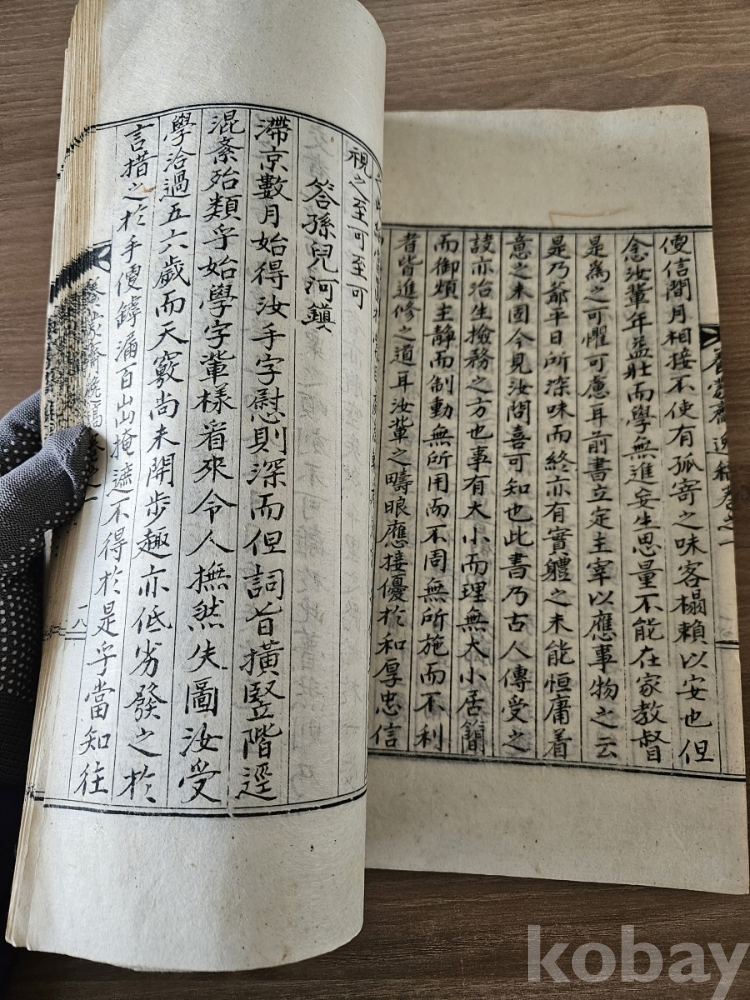 養蒙齋逸稿卷之一
便信間月相接不使有孤寄之味客榻賴以安也但
念汝輩年益壯而學無進安生思量不能在家教督
是爲之可懼可慮耳前書立定主宰以應事物之云
是乃爺平日所深味而終亦有實體之未能恒庸着
意之未固今見汝問喜可知也此書乃古人傳受之
訣亦治生撿務之方也事有大小而理無大小居簡
而御煩主靜而制動無所用而不周無所施而不利
者皆進修之道耳汝輩之疇眼應接優於和厚忠信
視之至可至可
答孫兒河鎭
滯京數月始得汝手字慰則深而但詞旨橫竪階逕
混紊殆類乎始學字輩樣看來令人撫然失圖汝受
學洽過五六歲而天竅尚未開步趣亦低劣發之於
言措之於手便罅漏百出掩遮不得於是乎當知往
養蒙齋逸稿卷之一
一八
kobay